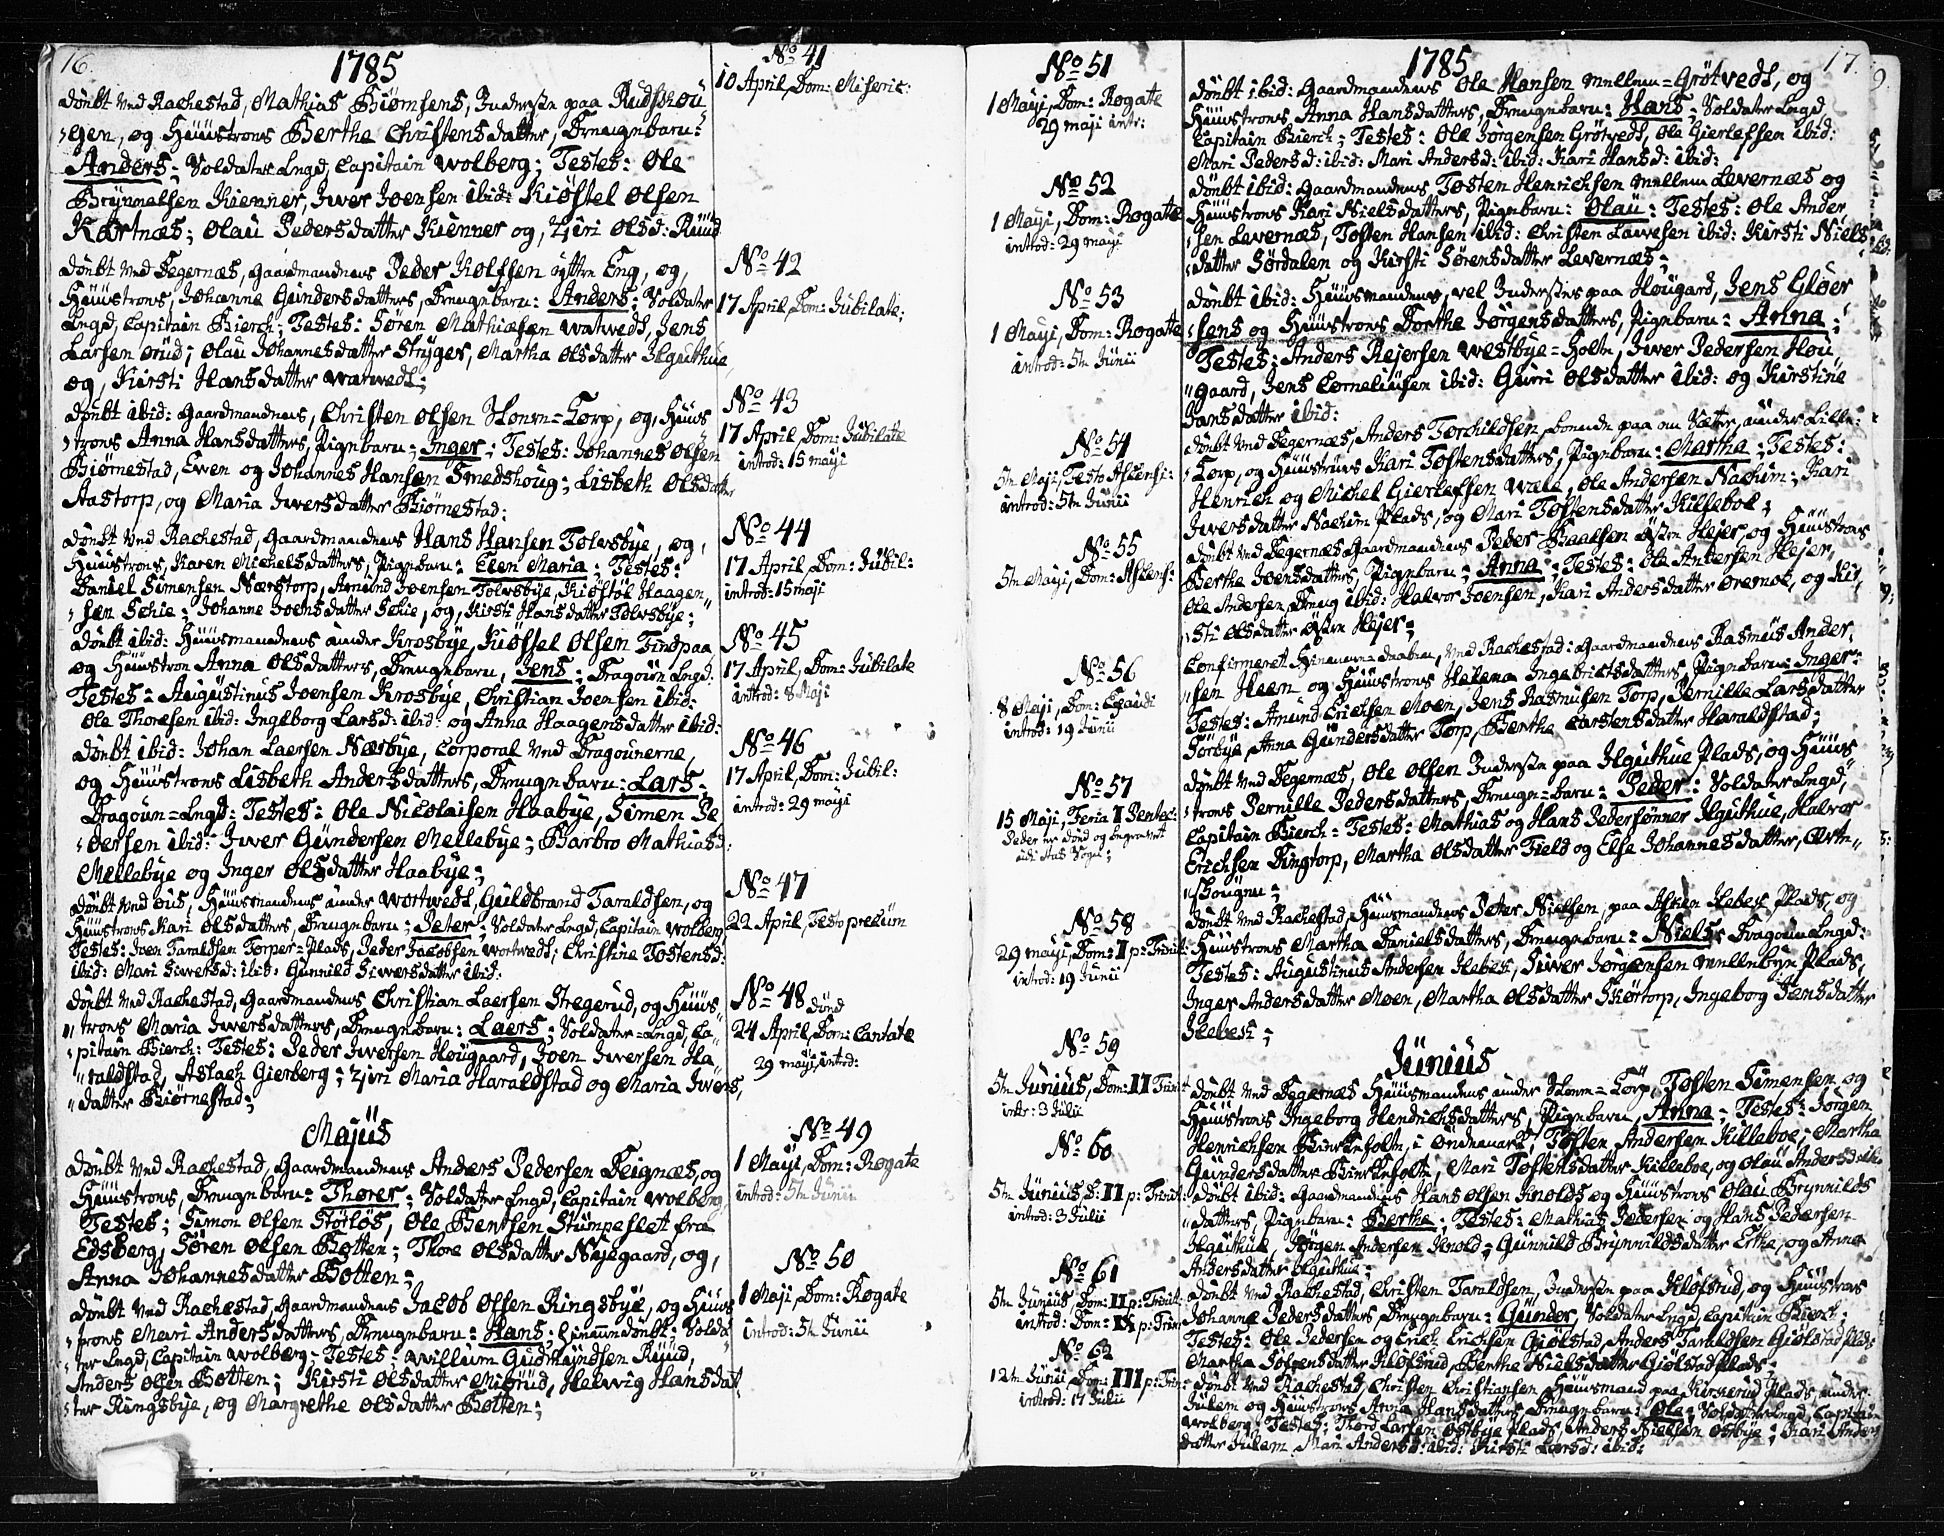 16.
1785
døubt ved Rachestad, Mathias Biømsens, Inderste paa Rudskou
"egen, og Hüüstrous Berthe Christensdatter, Drengebarn:
Anders; Soldater Lægd, Capitain Wolberg; Testes: Ole
Brÿnnelsen Kienner, Iwer Joensen ibid: Kiøstel Olsen
Kartnæs; Olau Pedersdatter Kienner og, Ziiri Olsd: Rüüd
døubt ved Degernæs, Gaardmandens Peder Kolssen ÿttre Eng, og,
Hüüstrous, Johanne Gundersdatters, Drengebarn: Anders; Soldater
Lægd, Capitain Bierch; Testes: Søren Mathiesen Watweds, Jens
Larsen Orüd; Olau Johannesdatter Strÿger, Martha Olsdatter Ilgüthue,
og, Kirsti Hansdatter Watweds;
døubt ibid: Gaardmandens, Christen Olsen Stomn=Torp, og, Hüüs
"trous Anna Hansdatters, Pigebarn; Inger; Testes: Johannes Olsen
Biørnestad, Ewen og Johannes Hansen Smedshoug; Lisbeth Olsdatter
Aastorp, og Maria Iwersdatter Biørnestad:
døubt ved Rachestad, Gaardmandens Hans Hansen Tolwsbÿe, og,
Hüüstrous, Karen Michelsdatters, Pigebarn: Elen Maria; Testes:
Daniel Simensen Næestorp, Amünd Joensen Tolwsbÿe, Kiøstøl Haagen"
"sen Schie; Johanne Joensdatter Schie, og, Kirsti Hansdatter Tolwsbÿe;
døubt ibid: Hüüsmandens under Krosbÿe, Kiøstel Olsen Tindpaa
og Hüüstrou Anna Olsdatters, Drengebarn, Jens; Dragoun Lægd:
Testes: Augustinus Joensen Krosbÿe, Christian Joensen ibid:
Ole Thoresen ibid: Ingeborg Larsd: ibid: og Anna Haagensdatter ibid:
døubt ibid: Johan Laersen Næsbÿe, Corporal ved Dragounerne,
og Hüüstrous Lisbeth Andersdatters, Drengebarn: Lars;
Dragoun=Lægd: Testes: Ole Nicolaisen Haabÿe, Simen Pe
"dersen ibid: Iwer Gündersen Mellebÿe; Barbro Mathiasd:
Mellebÿe og Inger Olsdatter Haabÿe;
døubt ved Øus, Hüüsmandens under Wortweds, Guldbrand Taraldsen, og
Hüüstrous Kari Olsdatters, Drengebarn; Peter; Soldater Lægd, Capitain Wolberg
Testes: Joen Taraldsen Torper=Plads, Peder Jacobsen Wortweds; Christine Tostensd:
ibid: Mari Siwersd: ibid: Gunnild Siwersdatter ibid:
døubt ved Rachestad, Gaardmandens Christian Laersen Stregerud, og Hüüs"
" trous Maria Iwersdatters, Drengebarn: Laers; Soldater=Lægd, Ca"
"pitain Bierch: Testes: Peder Iwersen Hougaard, Joen Iwersen Ha"
"raldstad, Aslach Gierberg; Ziiri Maria Haraldstad og Maria Iwers,
"datter Biørnestad;
Majüs
døubt ved Rachestad, Gaardmandens Anders Pedersen Deignæs, og
Hüüstrous, Drengebarn: Thorer; Soldater Lægd, Capitain Wolberg
Testes; Simon Olsen Størløs, Ole Bentsen Stümpeslet fra
Edsberg, Søren Olsen Botten; Thore Olsdatter Nÿegaard, og,
Anna Johannesdatter Botten;
døubt ved Rachestad, Gaardmandens Jacob Olsen Ringsbÿe, og Hüüs
"trous Mari Andersdatters, Drengebarn: Hans; hiemedøubt; Solda
"ter Lægd, Capitain Wolberg; Testes: Willum Gudmundsen Rüüd,
Anders Olsen Botten; Kirsti Olsdatter Misrüd, Helwig Hansdat
"ter Ringsbÿe, og Margrethe Olsdatter Botten;
No 41
10 April, Dom: Miseric:
No 42
17 April, Dom: Jubilate;
No 43
17 April, Dom: Jübilate
introd: 15 maÿi
No 44
17 April, Dom: Jübil:
introd: 15 maÿi
No 45
17 April, Dom: Jübilate
introd: 8 Maÿi
No 46
17 April, Dom: Jübil:
introd: 29 maÿi
No 47
22 April, Festo precüm
No 48 død
24 April, Dom: Cantate
29 maÿi, introd:
No 49
1 Maÿi, Dom: Rogate
introd: 5te Junii
No 50
1 Maji, Dom: Rogate
introd: 5te Junii
No 51
1 Maÿi, Dom: Rogate
29 maÿi intr:
No 52
1 Maÿi, Dom: Rogate
introd: 29 maÿi
No 53
1 Maÿi, Dom: Rogate
introd: 5te Jünii
No 54
5te Maji, Festo Ascensi:
introd: 5te Jünii
No 55
5te Maÿi, Dom: Ascens:
No 56
8 Maji, Dom: Exaudi
introd: 19 Junii
No 57
15 Maji, Feria II Pentec:
Peder er død og begravet
No 58
29 maÿi, Dom: I p: Trinit:
introd: 19 Junii
No 59
5te Jünius, Dom: II Trinit
intr: 3 Julii
No 60
5te Jünius D: II p: Trinit:
introd: 3 Julii
No 61
5te Jünius, Dom: II p: Trinit:
introd: Dom: IX p: Trin:
No 62
12te Jünii, Dom: III p: Trin:
introd: 17 Julii
1785
17.
døubt ibid: Gaardmandens Ole Hansen Mellem=Grøtveds, og
Hüüstrous, Anna Hansdatters, Drengebarn: Hans; Soldater Lægd
Capitain Bierch; Testes: Ole Jørgensen Grøtveds, Ole Gierlefsen ibid:
Mari Pedersd: ibid: Mari Andersd: ibid: Kari Hansd: ibid:
døubt ibid: Gaardmandens Tosten Henrichsen Mellem Levernæs og
Hüüstrous Kari Nielsdatters, Pigebarn: Olau: Testes: Ole Ander
"sen Levernæs, Tosten Hansen ibid: Christen Lawesen ibid: Kirsti Niels"
"datter Sørdalen og Kirsti Sørensdatter Levernæs;
døubt ibid: Hüüsmandens, vel Inderstes paa Hougard, Jens Gløer
"sens og Hüüstrous Dorthe Jørgensdatters, Pigebarn: Anna;
Testes; Anders Rejersen Westbÿe=Holte, Iwer Pedersen Hou"
"gaard, Jens Corneliüsen ibid: Gurri Olsdatter ibid: og Kirstine
Jansdatter ibid:
døubt ved Degernæs, Anders Torchildsen, boende paa en Sæter, under Lille:
"Torp, og Hüüstrous Kari Tostensdatters, Pigebarn: Martha; Testes:
Henrich og Michel Gierlefsen Wæle, Ole Andersen Nacheim; Kari
Iwersdatter Nacheim Plads, og Mari Tostensdatter Killeboe;
døubt ved Degernæs Gaardmandens Peder Baalsen Østre Hejer, og Hüüstrous
Berthe Joensdatters, Pigebarn; Anna; Testes: Ole Andersen Hejer,
Ole Andersen, Dreng ibid: Halvor Joensen, Kari Andersdatter Øremoe, og Kir,
"sti Olsdatter Østre Hejer;
Confirmeret Hiemme=daaben, ved Rachestad: Gaardmandens Rasmüs Ander,
"sen Heen og Hüüstrous Helena Ingebrictsdatters, Pigebarn: Inger:
Testes: Amund Erichsen Moen, Jens Rasmusen Torp, Pernille Larsdatter
Sørbÿe, Anna Gündersdatter Torp, Berthe Carstensdatter Haraldstad;
døubt ved Degernæs, Ole Olsen Inderste paa Ilguthue Plads, og Hüüs"
"trous Pernille Pedersdatters, Drenge=barn: Peder: Soldater Lægd,
Capitain Bierch= Testes: Mathias og Hans Pedersønner Ilguthue, Halvor
Erichsen Kingtorp, Martha Olsdatter Field og Else Johannesdatter, Ærte="
"schougne;
døubt ved Rachestad, Hüüsmandens Peter Nielsen, paa Asken Hebek Plads, og
Hüüstrous Martha Danielsdatters, Drengebarn: Niels: Dragoun Lægd:
Testes: Augustinus Andersen Hebes, Siwer Jørgensen Mellembÿe Plads,
Inger Andersdatter Moen, Martha Olsdatter Skørtorp, Ingeborg Jensdatter
Hebek;
Jünius
døubt ved Degernæs Hüüsmandens under Stomn=Torp, Tosten Simensen og
Hüüstrous Ingeborg Hendrichsdatters, Pigebarn, Anna; Testes: Jørgen
Henrichsen Birkenholte, i Ondemark, Tosten Andersen Killeboe; Martha
Gündersdatter Birkenholte, Mari Tostensdatter Killeboe, og Olau Andersdatter
døubt ibid: Gaardmandens Hans Olsen Knolds og Hüüstrous Olau Brÿnnilds
"datters, Pigebarn: Berthe; Testes: Mathias Pedersen og Hans Pedersen
Ilguthue, Jørgen Andersen Knold; Gunnild Brÿnnildsdatter Erthe, og Anne
Andersdatter Ilguthue;
døubt ved Rachestad, Christen Taraldsen, Inderste paa Kløfsrud, og Hüüstrous
Johanne Pedersdatters, Drengebarn: Günder, Soldater Lægd, Capitain Bierch;
Testes: Ole Pedersen og Erich Erichsen Giølstad, Anders Taraldsen Giølstad plads
Martha Jørgensdatter Kløfsrud, Berthe Nielsdatter Giølstad plads
døubt ved Rachestad, Christen Christiansen, Hüüsmand paa Kirkerud Plads under
Julem og Hüüstrous Anna Hansdatters Drengebarn: Ole; Soldater Lægd, Capitain
Wolberg: Testes: Thord Larsen Ostbÿe Plads, Anders Nielsen Ostbÿe; Kari Anders
datter Julem, Mari Andersd: ibid: Kirsti Larsd: ibid: